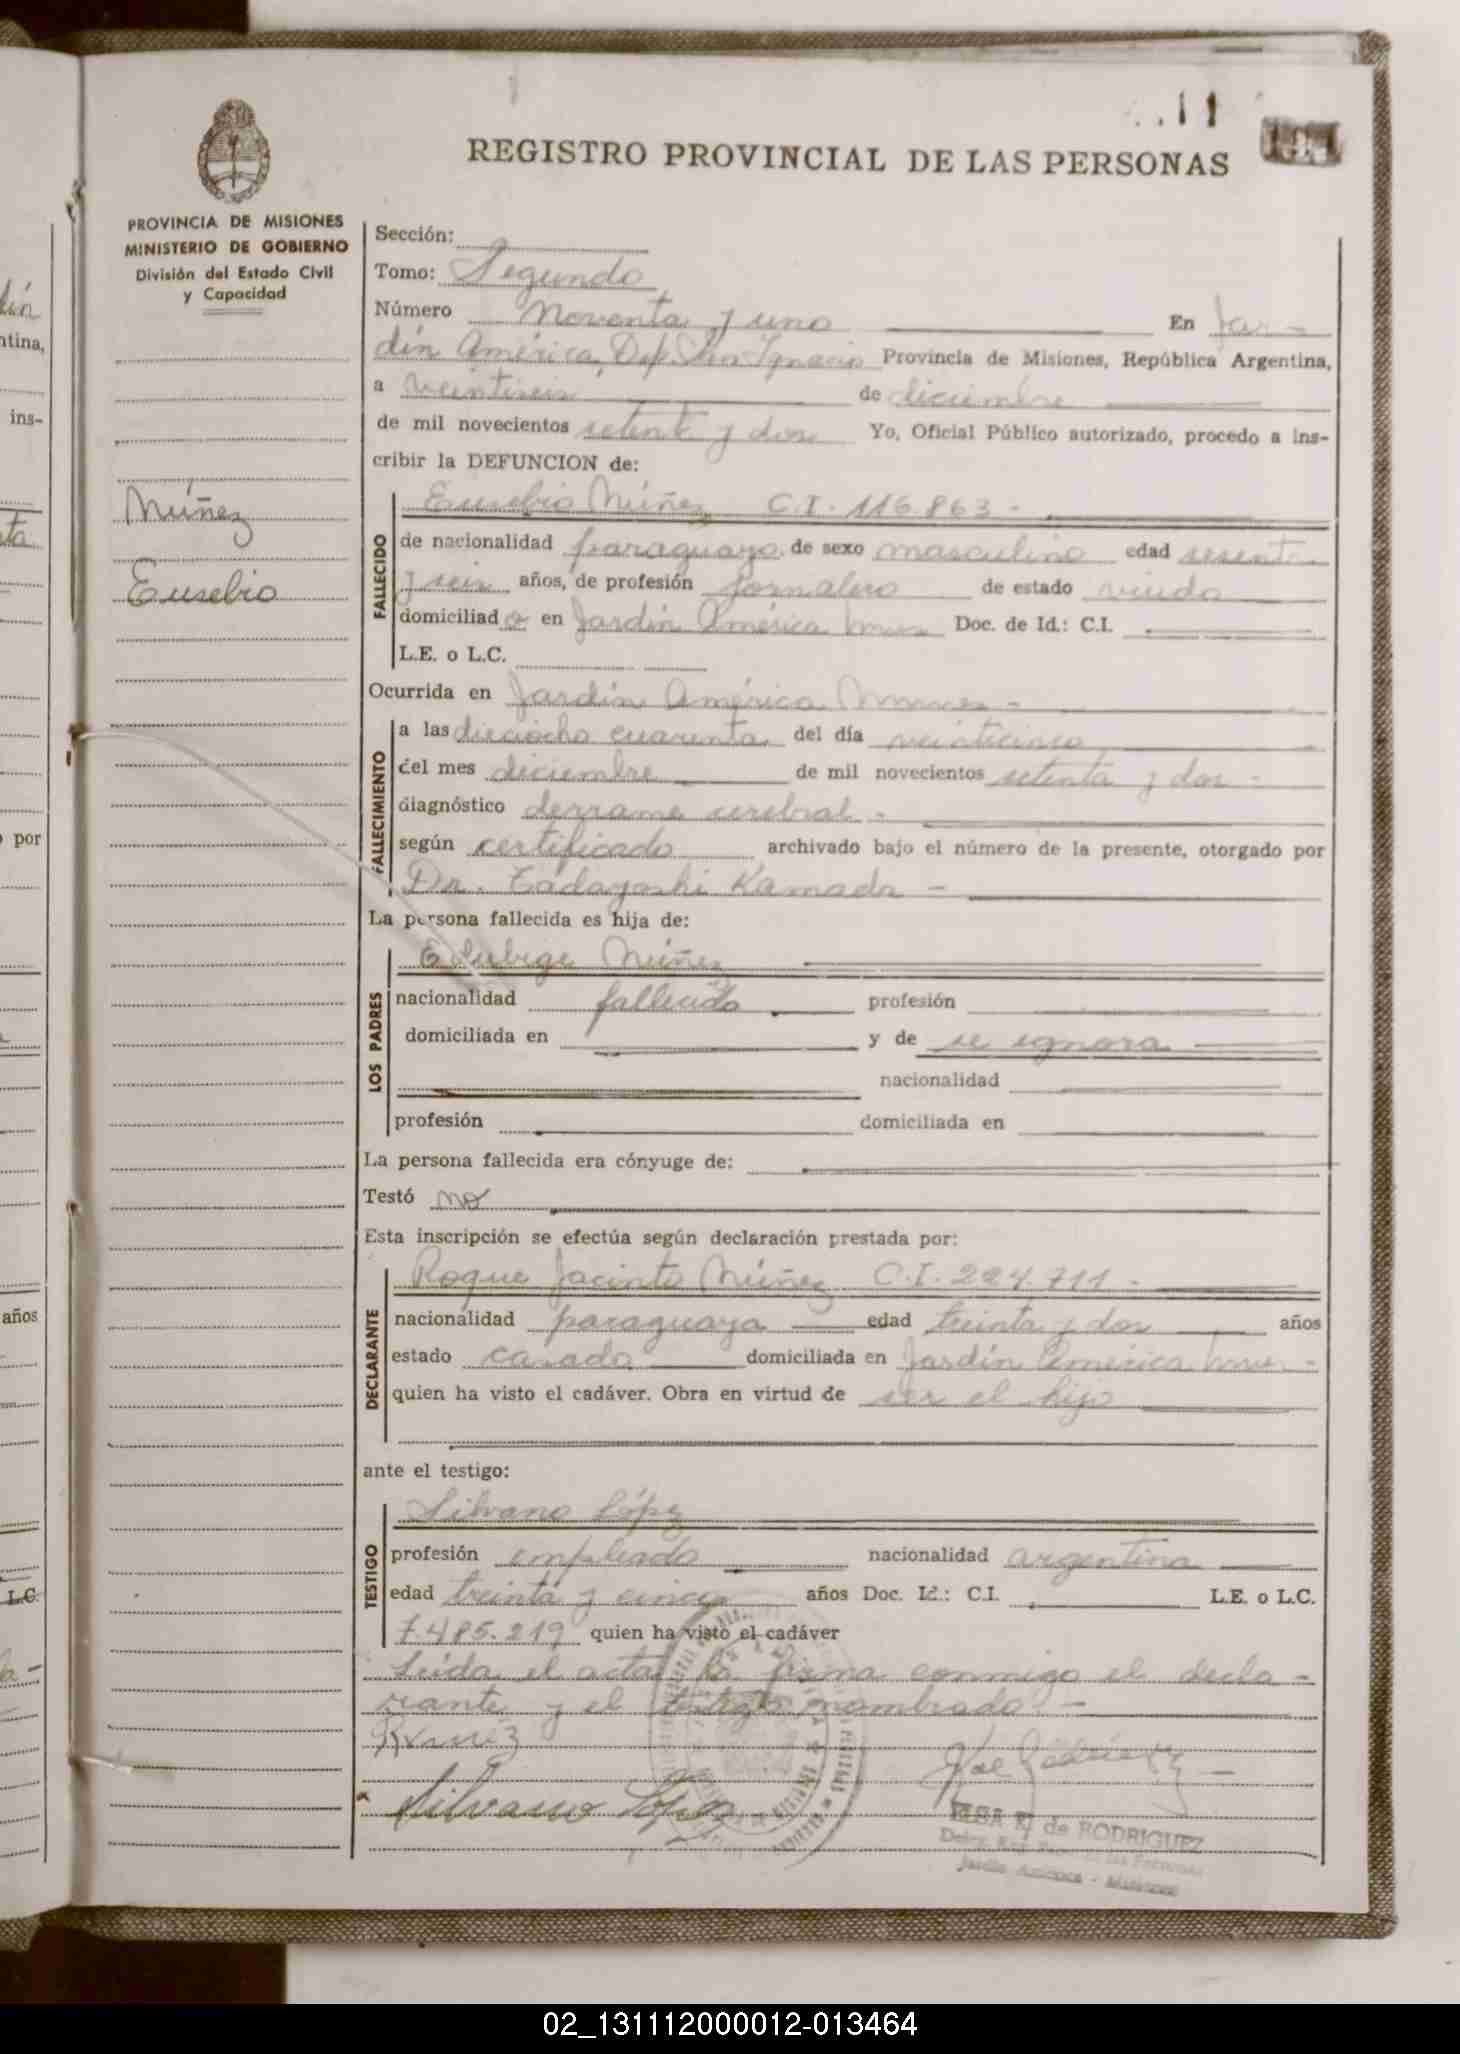 11
191
REGISTRO PROVINCIAL DE LAS PERSONAS
PROVINCIA DE MISIONES
MINISTERIO DE GOBIERNO
División del Estado Civil
y Capacidad
Núñez
Eusebio
Sección:
Tomo: Segundo
Número Noventa y uno En Jar-
dín América, Dep. San Ignacio Provincia de Misiones, República Argentina,
a veintiseis de diciembre
de mil novecientos setenta y dos Yo, Oficial Público autorizado, procedo a ins-
cribir la DEFUNCION de:
FALLECIDO
Eusebio Núñez C.I. 116.863 -
de nacionalidad paraguaya de sexo masculino edad sesenta
y seis años, de profesión jornalero de estado viudo
domiciliado en Jardín América Mnes Doc. de Id.: C.I.
L.E. o L.C.
Ocurrida en Jardín América Mnes -
FALLECIMIENTO
a las dieciocho cuarenta del día veinticinco
del mes diciembre de mil novecientos setenta y dos -
diagnóstico derrame cerebral -
según certificado archivado bajo el número de la presente, otorgado por
Dr. Tadayoshi Kamada -
La persona fallecida es hija de:
LOS PADRES
Núñez
nacionalidad fallecido profesión
domiciliada en y de se ignora
nacionalidad
profesión domiciliada en
La persona fallecida era cónyuge de:
Testó no
Esta inscripción se efectúa según declaración prestada por:
DECLARANTE
Roque Jacinto Núñez C.I. 224.711 -
nacionalidad paraguaya edad treinta y dos años
estado casado domiciliada en Jardín América Mnes -
quien ha visto el cadáver. Obra en virtud de ser el hijo
ante el testigo:
TESTIGO
Silvano López
profesión empleado nacionalidad argentina
edad treinta y cinco años Doc. Id.: C.I. L.E. o L.C.
7.485.219 quien ha visto el cadáver
Leída el acta, la firma conmigo el decla-
rante y el testigo nombrado -
Silvano López
de RODRIGUEZ
Jardín América - Misiones
02_131112000012-013464